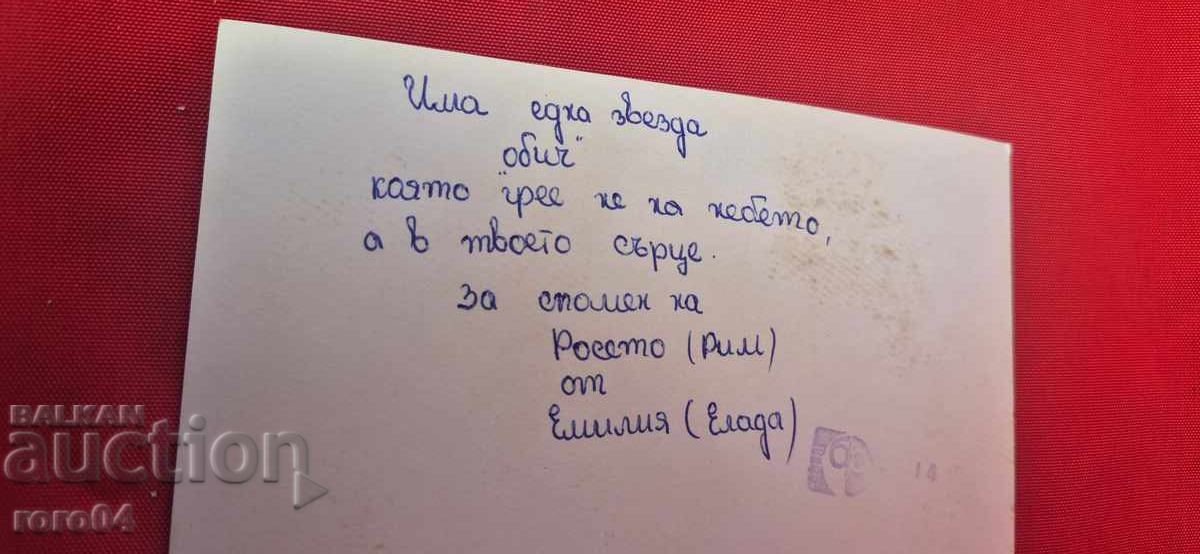 Има една звезда
„обич“
която грее не на небето,
а в твоето сърце.
За спомен на
Росето (Рим)
от
Емилия (Елада)
14
BALKAN
auction
roro04